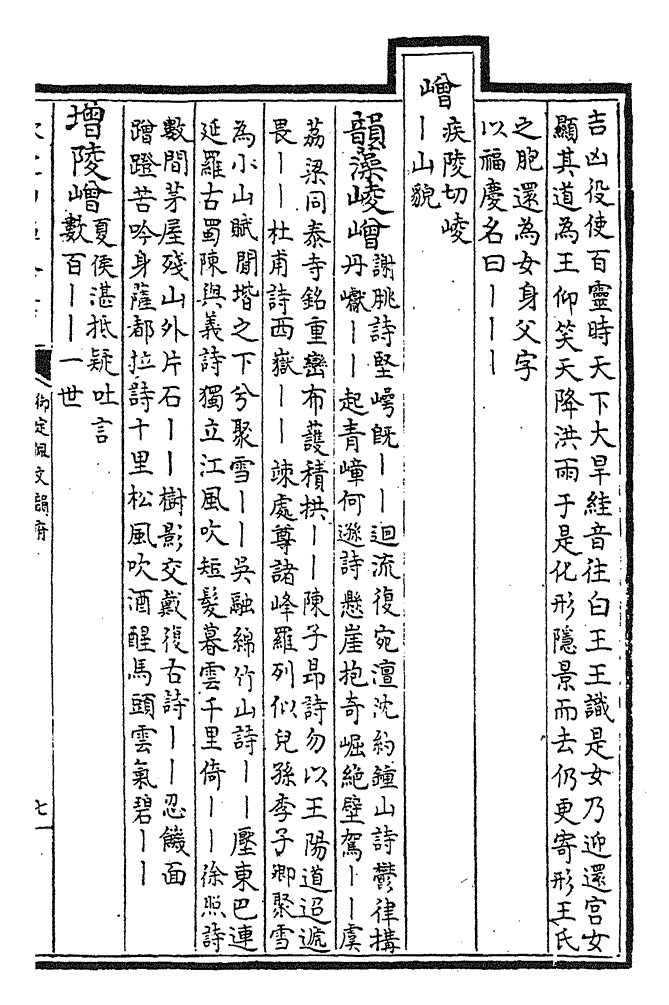 吉凶役使百靈時天下大旱絓音往白王王識是女乃迎還宮女
顯其道為王仰笑天降洪雨于是化形隱景而去仍更寄形王氏
之胞還為女身父字
以福慶名曰丨丨丨
嶒
疾陵切崚
丨山貌
韻藻崚嶒
謝脁詩堅崿旣丨丨迴流復宛澶沈約鐘山詩鬱律搆
丹巘丨丨起青嶂何遜詩懸崖抱奇崛絕壁駕丨丨虞
荔梁同泰寺銘重巒布䕶積拱丨丨陳子昂詩勿以王陽道迢遞
畏丨丨杜甫詩西嶽丨丨竦處尊諸峰羅列似兒孫李子卿聚雪
為小山賦閒堦之下兮聚雪丨丨吳融綿竹山詩丨丨壓東巴連
延羅古蜀陳與義詩獨立江風吹短髮暮雲千里倚丨丨徐照詩
數間茅屋殘山外片石丨丨樹影交戴復古詩丨丨忍饑面
蹭蹬苦吟身薩都拉詩十里松風吹酒醒馬頭雲氣碧丨丨
增陵嶒
夏侯湛抵疑吐言
數百丨丨一世
御定佩文韻府
七